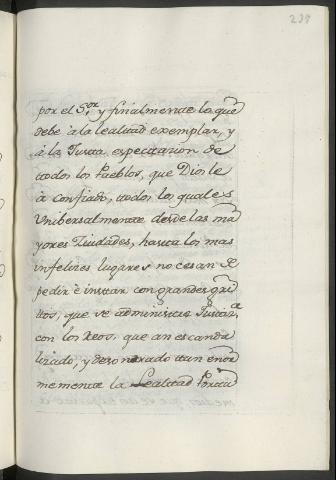 238
por el S.or y finalmente lo que
debe â la lealtad exemplar, y
â la Justa expectacion de
todos los Pueblos, que Dios le
à confiado, todos los quales
Unibersalmente desde las ma
yores Ciudades, hasta los mas
infelizes lugares no cesan de
pedir è instar con grandes gri
tos, que se administre Justiz.a
con los Reos, que an escanda
lizado, y desonrado tan enor
memente la Lealtad Portu